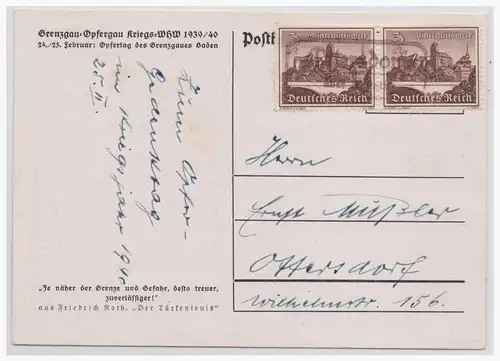 Grenzgau-Opfergau Kriegs-WHW 1939/40
24./25. Februar: Opfertag des Grenzgaues Baden
Zum Opfer-
Gedenktag
im Kriegsjahr 1940
25. II.
„Je näher der Grenze und Gefahr, desto treuer,
zuverlässiger!"
aus Friedrich Roth, „Der Türkenlouis"
Postk
3
Deutsches Reich
3
Deutsches Reich
Herrn
Ernst Müßler
Ottersdorf
Wilhelmstr. 156.